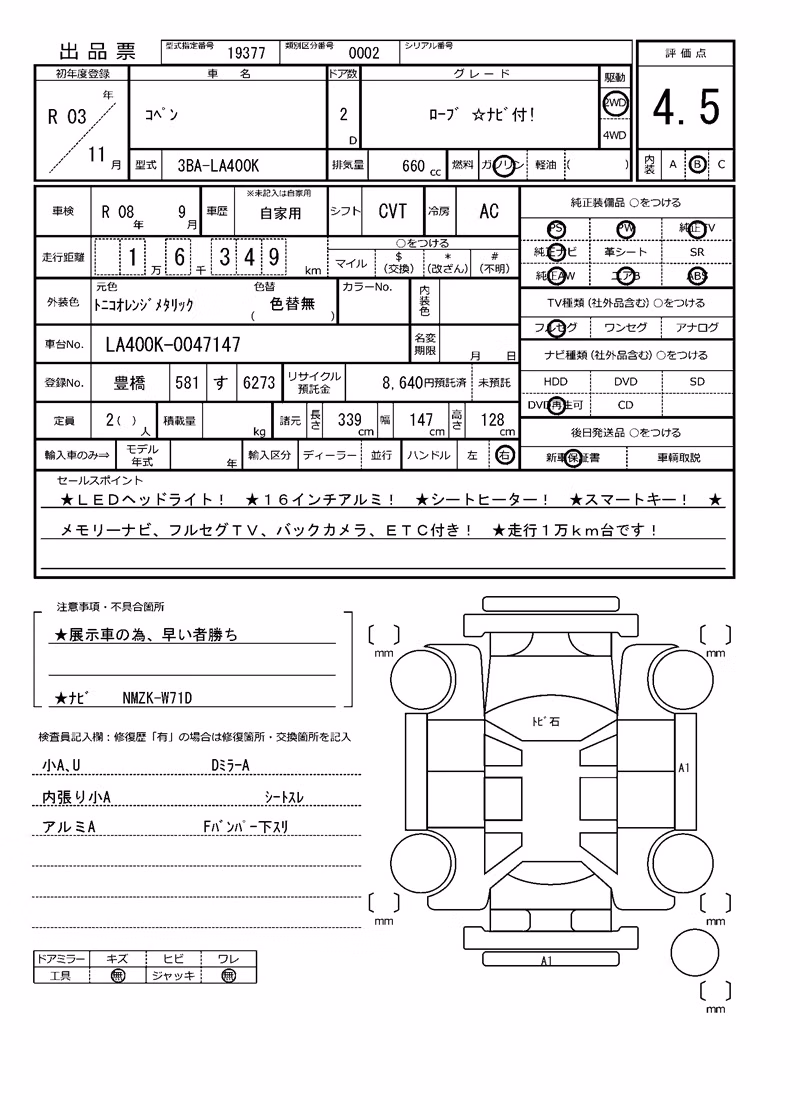 出品票 型式指定番号 19377 類別区分番号 0002 シリアル番号
初年度登録 車 名 ドア数 グレード 駆動 評価点
R 03 年 11 月 コペン 2 D ローブ ☆ナビ付! 2WD 4WD 4.5
型式 3BA-LA400K 排気量 660 cc 燃料 ガソリン 軽油 ( ) 内装 A B C
車検 R 08 年 9 月 車歴 ※未記入は自家用 自家用 シフト CVT 冷房 AC 純正装備品 ○をつける
PS PW 純正TV
走行距離 1 万 6 千 3 4 9 km ○をつける マイル $ (交換) * (改ざん) # (不明)
純正ナビ 革シート SR
純正AW エアB ABS
外装色 元色 トニコオレンジメタリック 色替 ( 色替無 ) カラーNo. 内装色
TV種類(社外品含む)○をつける
フルセグ ワンセグ アナログ
車台No. LA400K-0047147 名変期限 月 日
ナビ種類(社外品含む)○をつける
登録No. 豊橋 581 す 6273 リサイクル預託金 8,640円預託済 未預託
HDD DVD SD
DVD再生可 CD
定員 2( ) 人 積載量 kg 諸元 長さ 339 cm 幅 147 cm 高さ 128 cm
後日発送品 ○をつける
輸入車のみ⇒ モデル年式 年 輸入区分 ディーラー 並行 ハンドル 左 右
新車保証書 車輌取説
セールスポイント
★LEDヘッドライト! ★16インチアルミ! ★シートヒーター! ★スマートキー! ★
メモリーナビ、フルセグTV、バックカメラ、ETC付き! ★走行1万km台です!
注意事項・不具合箇所
★展示車の為、早い者勝ち
★ナビ NMZK-W71D
検査員記入欄:修復歴「有」の場合は修復箇所・交換箇所を記入
小A、U DミラーA
内張り小A シートスレ
アルミA Fバンパー下スリ
ドアミラー キズ ヒビ ワレ
工具 無 ジャッキ 無
mm mm
トビ石
A1
mm mm
A1
mm